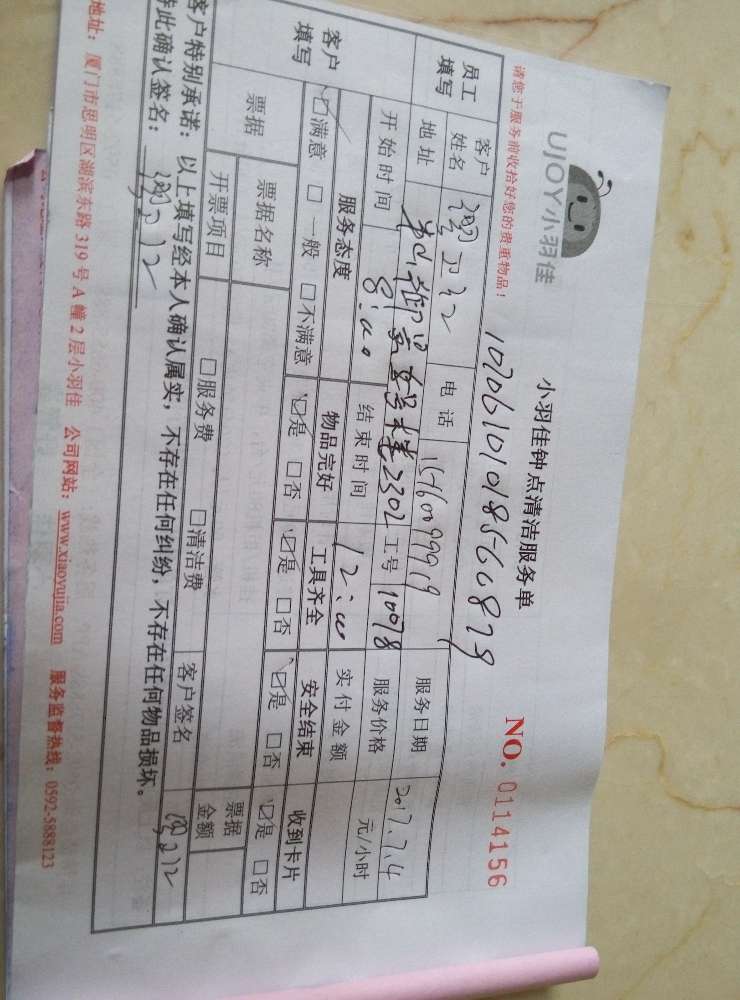 UJOY小羽佳
小羽佳钟点清洁服务单
NO. 0114156
请您于服务前收拾好您的贵重物品!
10206101018560829
员工填写 客户姓名 电话 服务日期 2017.7.4
地址 2302 工号 10078 服务价格 元/小时
开始时间 8:00 结束时间 12:00 实付金额
客户填写 服务态度 物品完好 工具齐全 安全结束 收到卡片
☑满意 □一般 □不满意 ☑是 □否 ☑是 □否 ☑是 □否 ☑是 □否
票据 票据名称 票据金额
开票项目 □服务费 □清洁费 客户签名
客户特别承诺:以上填写经本人确认属实,不存在任何纠纷,不存在任何物品损坏。
特此确认签名:
地址:厦门市思明区湖滨东路319号A幢2层小羽佳 公司网站:www.xiaoyujia.com 服务监督热线:0592-5888123